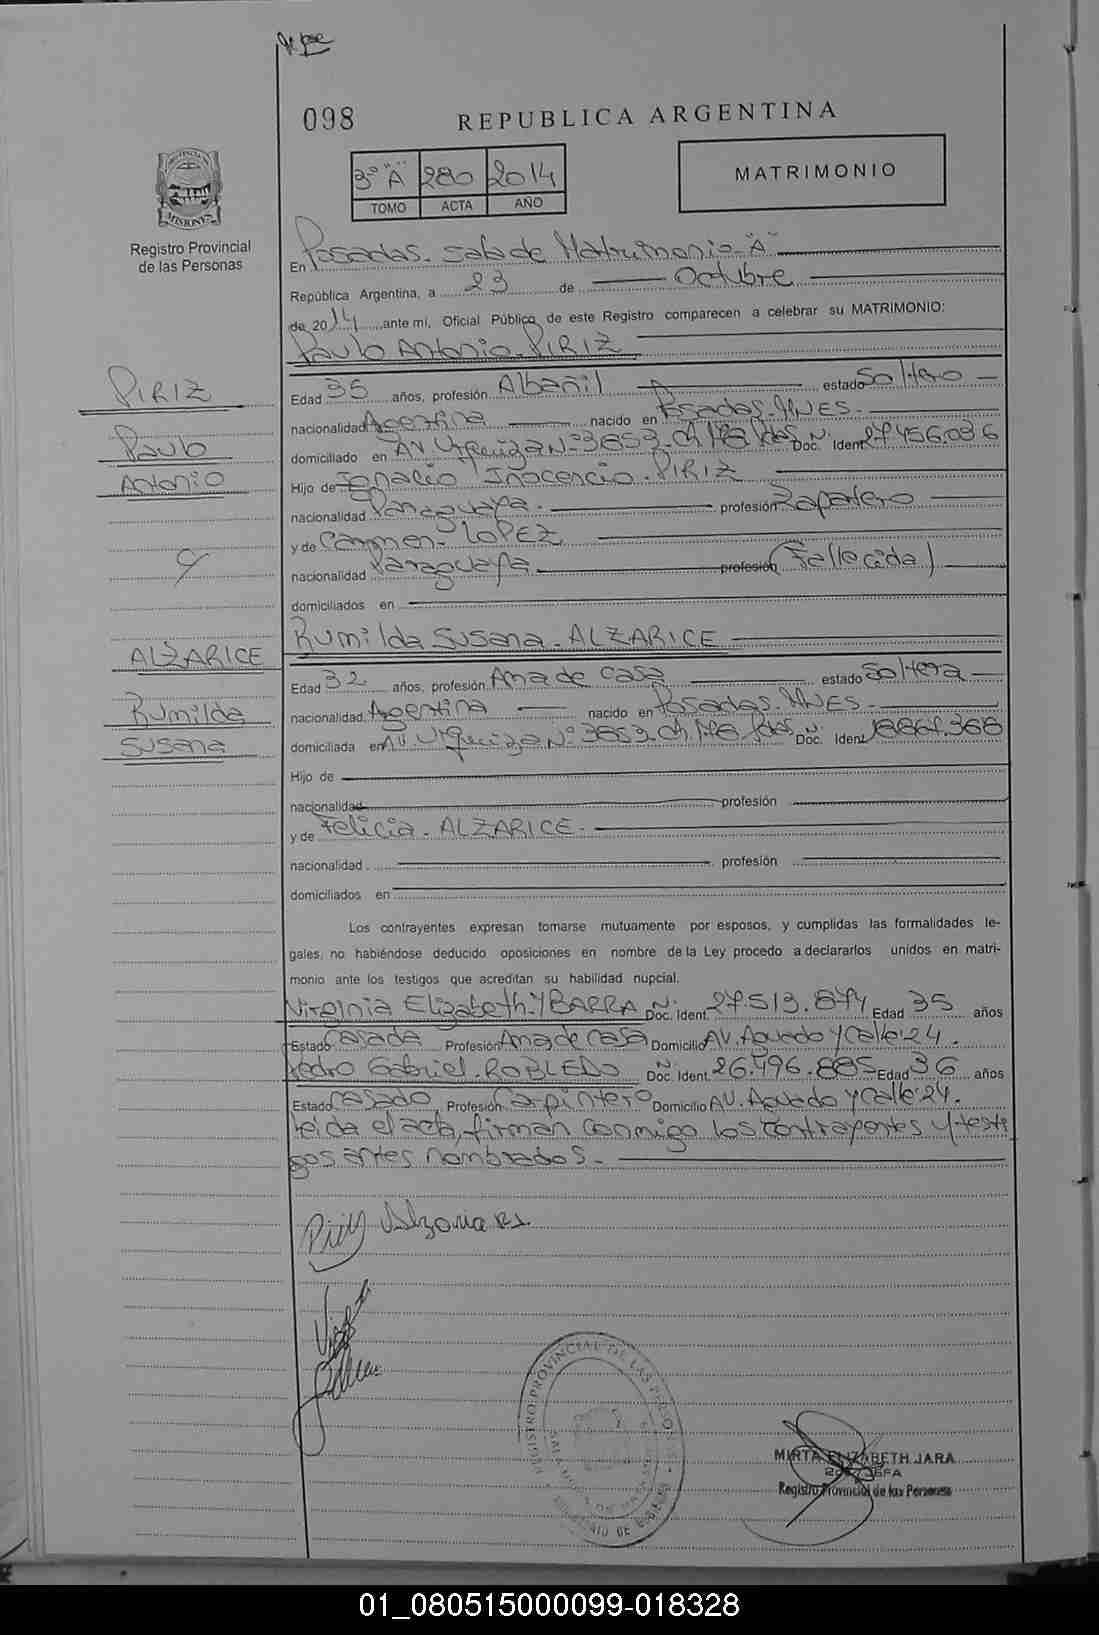 098
REPUBLICA ARGENTINA
3º "A" 280 2014
TOMO ACTA AÑO
MATRIMONIO
PROVINCIA DE
MISIONES
Registro Provincial
de las Personas
En Posadas. Sala de Matrimonio "A"
República Argentina, a 23 de Octubre
de 2014 ante mí, Oficial Público de este Registro comparecen a celebrar su MATRIMONIO:
Paulo Antonio. PIRIZ
PIRIZ
Paulo
Antonio
Edad 35 años, profesión Albañil estado Soltero
nacionalidad Argentina nacido en Posadas. MNES.
domiciliado en AV. Urquiza Nº 3653. Ch 148 Pdas Doc. Nº Ident 27.456.036
Hijo de Ignacio Inocencio. PIRIZ
nacionalidad Paraguaya. profesión Zapatero
y de Carmen. LOPEZ
nacionalidad Paraguaya. profesión (Fallecida)
domiciliados en
Rumilda Susana. ALZARICE
ALZARICE
Rumilda
Susana
Edad 32 años, profesión Ama de casa estado Soltera
nacionalidad Argentina nacido en Posadas. MNES.
domiciliada en AV. Urquiza Nº 3653. Ch Pdas Doc. Nº Ident
Hijo de
nacionalidad profesión
y de Felicia. ALZARICE.
nacionalidad profesión
domiciliados en
Los contrayentes expresan tomarse mutuamente por esposos, y cumplidas las formalidades le-
gales, no habiéndose deducido oposiciones en nombre de la Ley procedo a declararlos unidos en matri-
monio ante los testigos que acreditan su habilidad nupcial.
Virginia Elizabeth. YBARRA Doc. Nº Ident. 27.513.874 Edad 35 años
Estado Casada Profesión Ama de casa Domicilio AV. Aguado y Calle 24.
Pedro Gabriel. ROBLEDO Doc. Nº Ident. 26.496.885 Edad 36 años
Estado Casado Profesión Carpintero Domicilio AV. Aguado y Calle 24.
Leida el acta, firman conmigo los contrayentes y testi
gos antes nombrados.
REGISTRO PROVINCIAL DE LAS PERSONAS
MIRTA ELIZABETH JARA
JEFA
Registro Provincial de las Personas
01_080515000099-018328